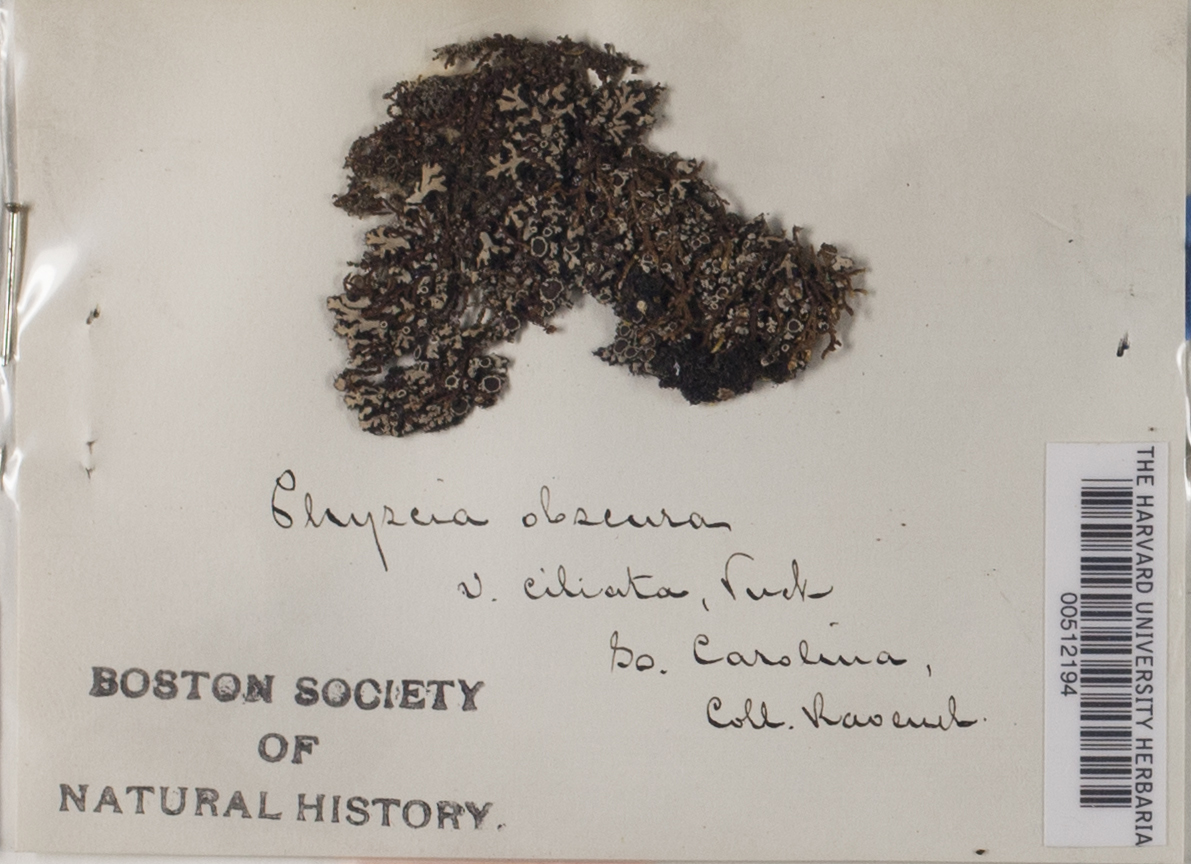 Physcia obscura
v. ciliata, Tuck
So. Carolina,
Coll. Ravenel.
BOSTON SOCIETY
OF
NATURAL HISTORY.
THE HARVARD UNIVERSITY HERBARIA
00512194